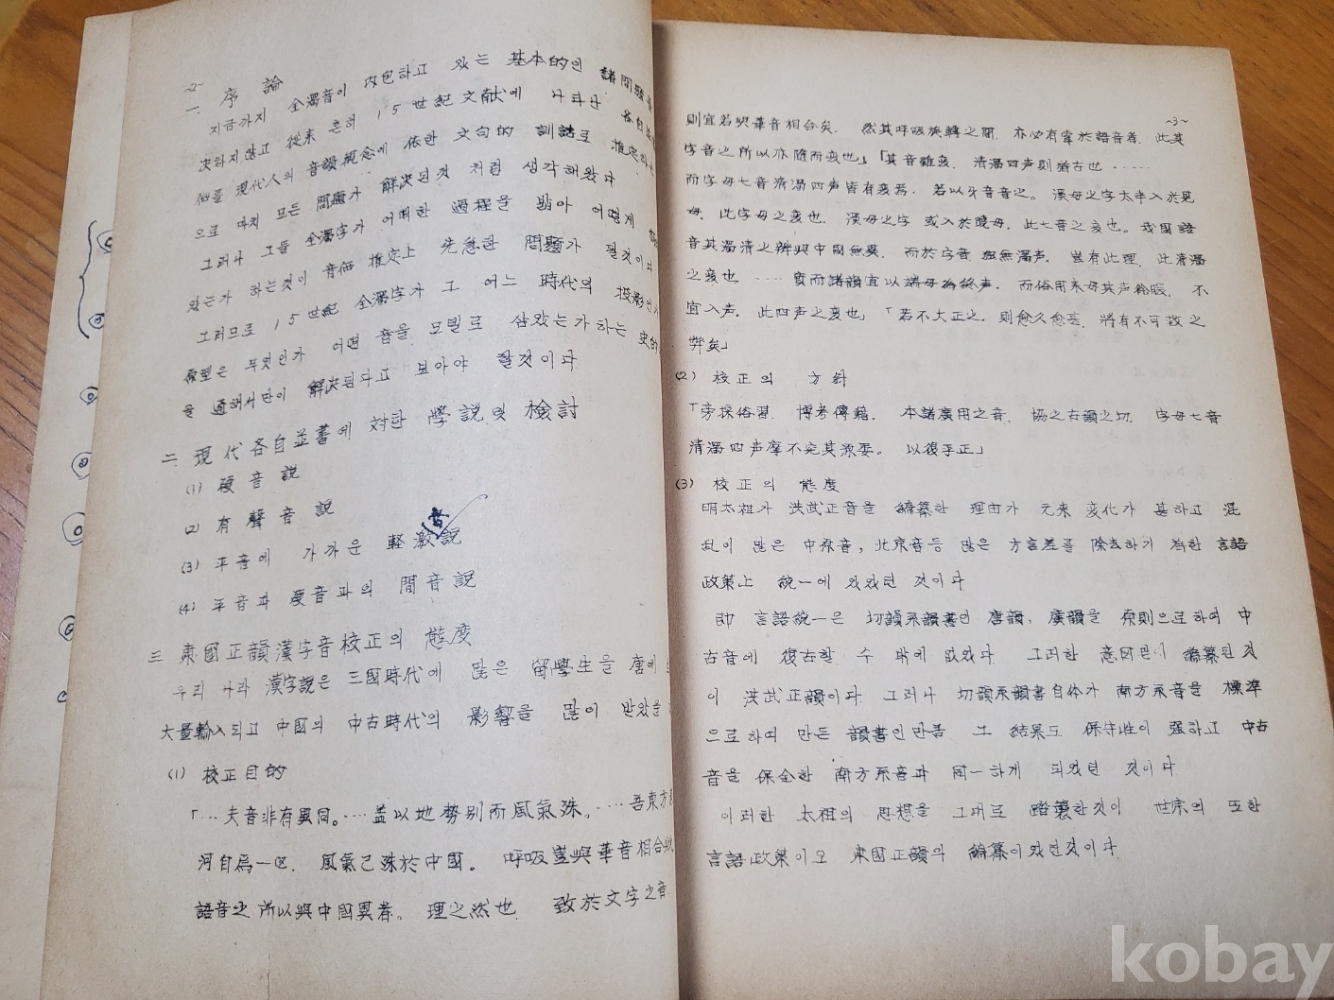 -2-
一. 序論
지금까지 全濁音이 內包하고 있는 基本的인 諸問題를
決하지않고 從來 흔히 15世紀文献에 나타난 各自並
値를 現代人의 音韻概念에 依한 文句的 訓詁로 推定하
으로 마치 모든 問題가 解決된것 처럼 생각해왔다
그러나 그들 全濁字가 어떠한 過程을 밟아 어떻게
있는가 하는것이 音価 推定上 先急한 問題가 될것이다
그러므로 15世紀 全濁字가 그 어느 時代의 投影
原型은 무엇인가 어떤 音을 모델로 삼았는가하는 史的
을 通해서만이 解決된다고 보아야 할것이다
二. 現代各自並書에 対한 學説 및 檢討
(1) 硬音説
(2) 有聲音説
(3) 平音에 가까운 軽激説
(4) 平音과 硬音과의 間音説
三 東國正韻漢字音校正의 態度
우리 나라 漢字説은 三國時代에 많은 留學生을 唐에
大量輸入되고 中國의 中古時代의 影響을 많이 받았을
(1) 校正目的
「‥夫音非有異同。‥‥盖以地勢別而風氣殊。‥‥吾東方
河自爲一区. 風氣已殊於中國。 呼吸豈與華音相合
語音之所以與中國異者。 理之然也. 致於文字之音
-3-
則宜若與華音相合矣. 然其呼吸旋轉之間, 亦必有牽於語音者, 此其
字音之所以亦隨而変也」「其音雖変, 清濁四声則猶古也‥‥‥
而字母七音清濁四声皆有変焉. 若以牙音言之。 溪母之字太半入於見
母. 此字母之変也. 溪母之字 或入於曉母, 此七音之変也。我國語
音其濁清之辨與中國無異, 而於字音 独無濁声. 豈有此理, 此清濁
之変也 ‥‥ 質而諸韻宜以端母為終声. 而俗用來母其声緩, 不
宜入声. 此四声之変也」「若不大正之. 則愈久愈甚, 將有不可救之
弊矣」
(2) 校正의 方針
「旁採俗習, 博考傳籍. 本諸廣用之音, 協之古韻之切. 字母七音
清濁四声靡不究其源委。 以復乎正」
(3) 校正의 態度
明太祖가 洪武正音을 編纂한 理由가 元來 変化가 甚하고 混
乱이 많은 中原音, 北京音등 많은 方言差를 除去하기 爲한 言語
政策上 統一에 있었던 것이다
即 言語統一은 切韻系韻書인 唐韻, 廣韻을 原則으로하여 中
古音에 復古할 수 밖에 없었다 그러한 意図 編纂된 것
이 洪武正韻이다. 그러나 切韻系韻書自体가 南方系音을 標準
으로하여 만든 韻書인만큼 그 結果도 保守性이 强하고 中古
音을 保全한 南方系音과 同一하게 되었던 것이다
이러한 太祖의 思想을 그대로 踏襲한것이 世宗의 또한
言語政策이오 東國正韻의 編纂이었던것이다.
kobay